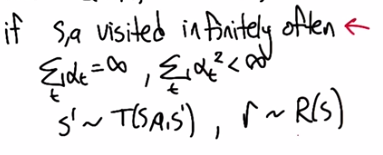 if s,a visited infinitely often ←
∑_t α_t = ∞ , ∑_t α_t² < ∞
s' ~ T(s,a,s') , r ~ R(s)